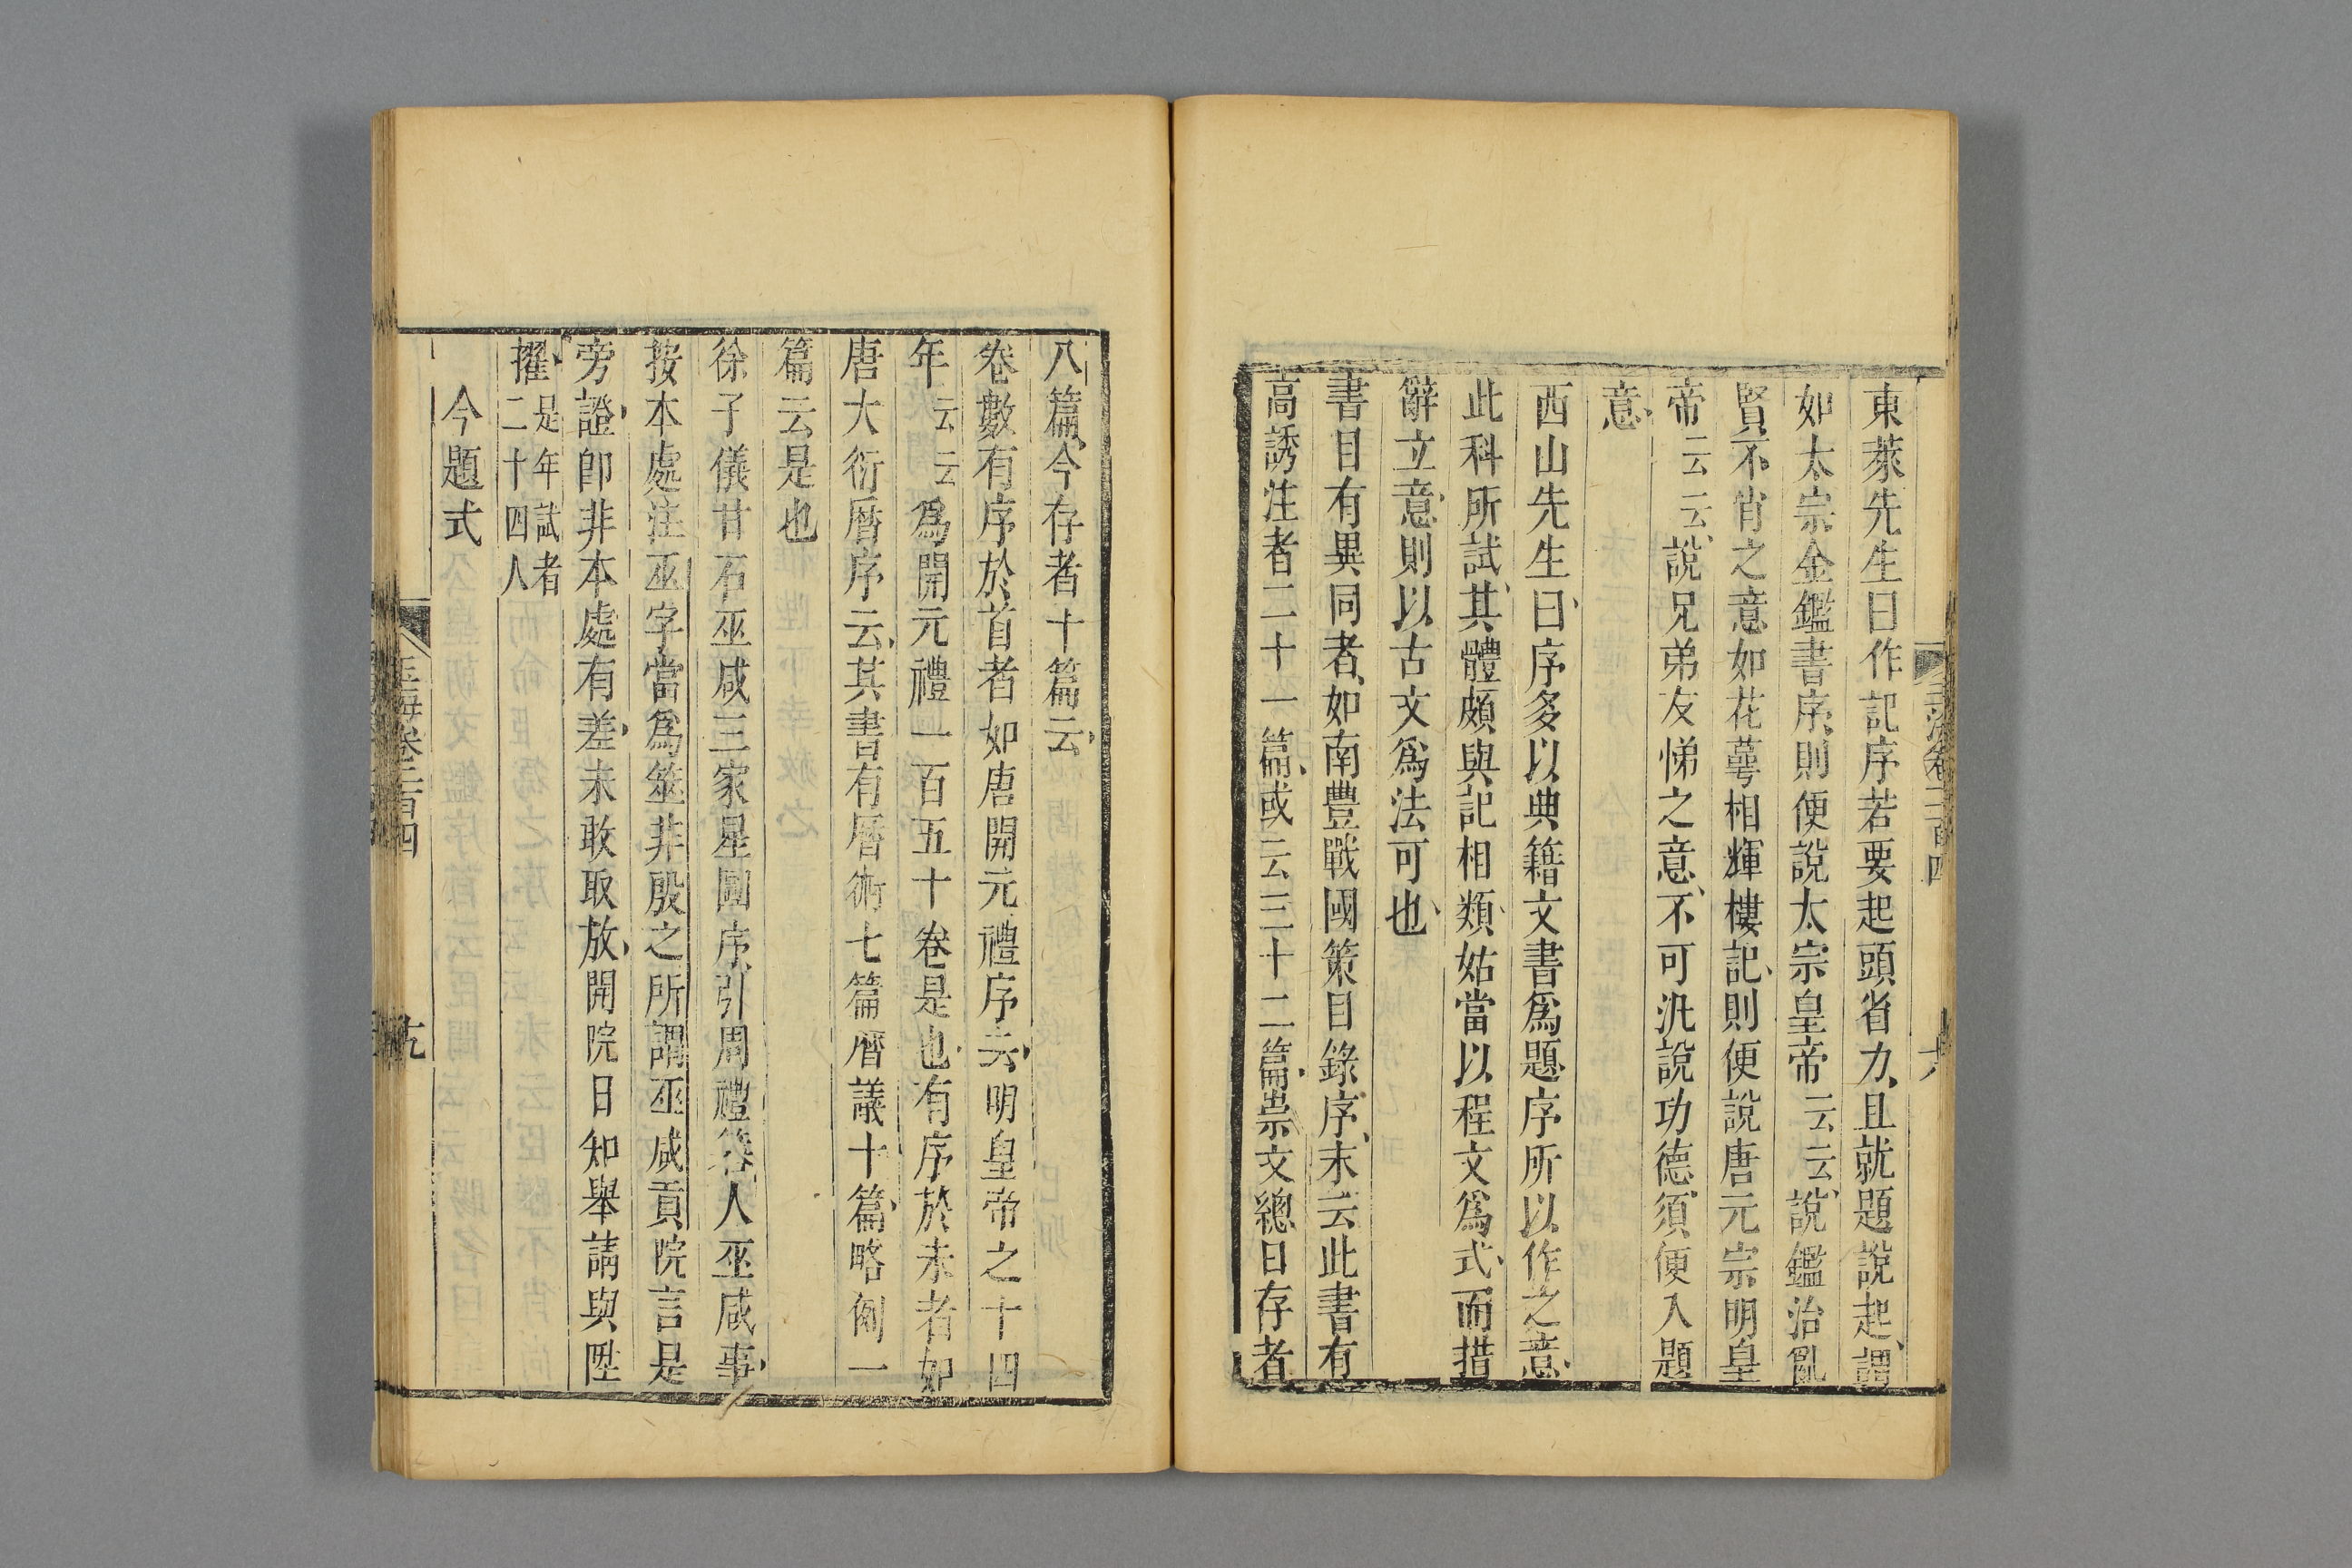 東萊先生曰作記序若要起頭省力且就題說起謂
如太宗金鑑書序則便說太宗皇帝云云說鑑治亂
賢不肖之意如花萼相輝樓記則便說唐元宗明皇
帝云云說兄弟友悌之意不可汎說功德須便入題
意
西山先生曰序多以典籍文書爲題序所以作之意
此科所試其體頗與記相類姑當以程文爲式而措
辭立意則以古文爲法可也
書目有異同者如南豐戰國策目錄序末云此書有
高誘注者二十一篇或云三十二篇崇文總目存者
八篇今存者十篇云
卷數有序於首者如唐開元禮序云明皇帝之十四
年云云爲開元禮一百五十卷是也有序於末者如
唐大衍曆序云其書有曆術七篇曆議十篇略例一
篇云是也
徐子儀甘石巫咸三家星圖序引周禮簭人巫咸事
按本處注巫字當爲筮非殷之所謂巫咸貢院言是
旁證卽非本處有差未敢取放開院日知舉請與陞
擢是年試者二十四人
今題式
玉海卷二百四